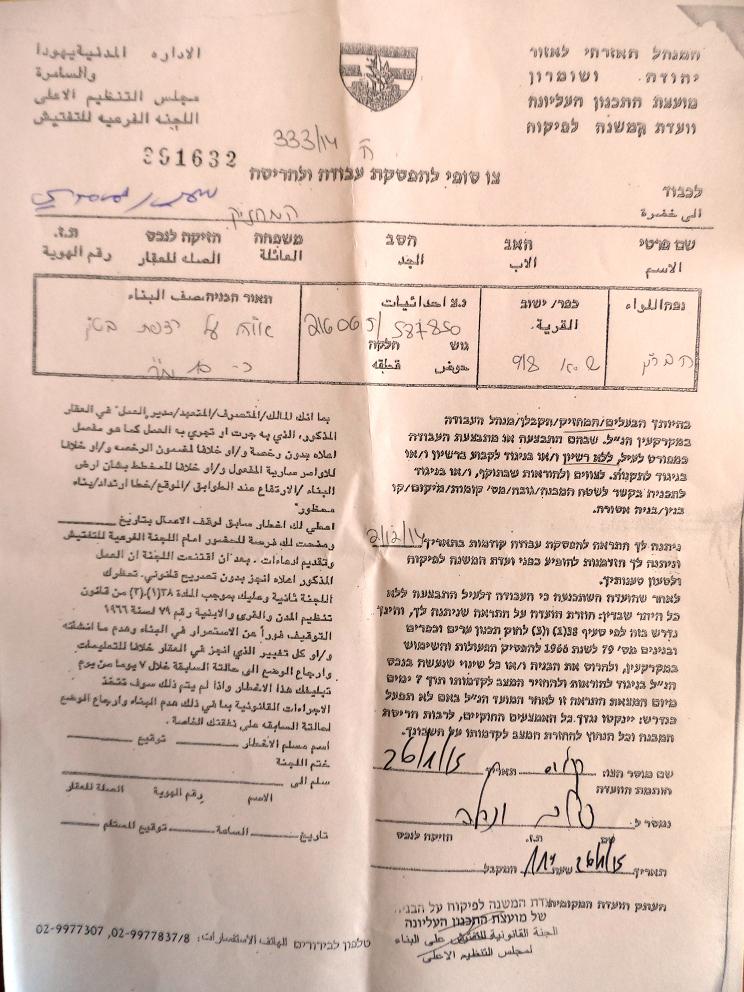 המנהל האזרחי לאזור
יהודה ושומרון
מועצת התכנון העליונה
וועדת המשנה לפיקוח
الاداره المدنية يهودا
والسامرة
مجلس التنظيم الاعلى
اللجنه الفرعيه للتفتيش
ה 333/14
391632
צו סופי להפסקת עבודה ולהריסה
לכבוד
الى حضرة
המחזיק
שם פרטי האב הסב משפחה הזיקה לנכס ת.ז.
الاسم الاب الجد العائلة الصله للعقار رقم الهوية
נפה/اللواء כפר/ ישוב נ.צ احداثيات תאור הבניה/وصف البناء
القرية.
587850
גוש חלקה
حوض قطعه
בהיותך הבעלים/המחזיק/הקבלן/מנהל העבודה
במקרקעין הנ"ל, שבהם התבצעה או מתבצעת העבודה
כמפורט לעיל, ללא רשיון ו/או בניגוד לקבוע ברשיון ו/או
בניגוד לתקנות, לצווים ולהוראות שבתוקף, ו/או בניגוד
לתכנית בקשר לשטח המבנה/גובה/מס' קומות/מיקום/קו
בנין/בניה אסורה.
ניתנה לך התראה להפסקת עבודה קודמות בתאריך 2/12/14
וניתנה לך הזדמנות להופיע בפני ועדת המשנה לפיקוח
ולטעון טענותיך.
לאחר שהועדה השתכנעה כי העבודה דלעיל התבצעה ללא
כל היתר שבדין: חוזרת הועדה על התראה שניתנה לך, והינך
נדרש בזה לפי סעיף 38(1) (3) לחוק תכנון ערים וכפרים
ובנינים מס' 79 לשנת 1966 להפסיק הפעולות והשימוש
במקרקעין, ולהרוס את הבניה ו/או כל שינוי שנעשה בנכס
הנ"ל בניגוד להוראות ולהחזיר המצב לקדמותו תוך 7 ימים
מיום המצאת התראה זו לאחר המועד הנ"ל באם לא תפעל
כנדרש: יינקטו נגדך כל האמצעים החוקיים, לרבות הריסת
המבנה וכל הנחוץ להחזרת המצב לקדמותו על חשבונך.
שם מוסר הצו: תאריך 26/1/15
חותמת הוועדה
נמסר ל
שם ת.ז. הזיקה לנכס
תאריך 26/1/15 שעה המקבל
העתק הועדה המקומית
ועדת המשנה לפיקוח על הבניה
של מועצת התכנון העליונה
اللجنة القانونية للتفتيش على البناء
لمجلس التنظيم الاعلى
بما انك المالك/المتصرف/المتعهد/مدير العمل" في العقار
المذكور، الذي به جرت او تجري به العمل كما هو مفصل
اعلاه بدون رخصة و/او خلافا لمضمون الرخصه و/او خلافا
للاوامر سارية المفعول و/او خلافا للمخطط بشان ارض
البناء /الارتفاع عند الطوابق /الموقع/خط ارتداد/بناء
محظور"
اعطي لك اخطار سابق لوقف الاعمال بتاريخ
ومنحت لك فرصة للحضور امام اللجنة الفرعيه للتفتيش
وتقديم ادعاءات . بعد ان اقتنعت اللجنة ان العمل
المذكور اعلاه انجز بدون تصريح قانوني. تحظرك
اللجنة ثانية وعليك بموجب المادة ٣٨(١)،(٣) من قانون
تنظيم المدن والقرى والابنية رقم ٧٩ لسنة ١٩٦٦
التوقيف فوراً عن الاستمرار في البناء وهدم ما انشئته
و/او كل تغيير الذي انجز في العقار خلافا للتعليمات
وارجاع الوضع الى حالته السابقة خلال ٧ يوما من يوم
تبليغك هذا الاخطار واذا لم يتم ذلك سوف تتخذ
الاجراءات القانونية بما في ذلك هدم البناء وارجاع الوضع
لحالته السابقه على نفقتك الخاصة .
اسم مسلم الاخطار توقيع
ختم اللجنة
سلم الى
الاسم رقم الهوية الصلة للعقار
تاريخ الساعة توقيع المستلم
טלפון לבירורים الهاتف الاستفسارات: 02-9977837/8, 02-9977307